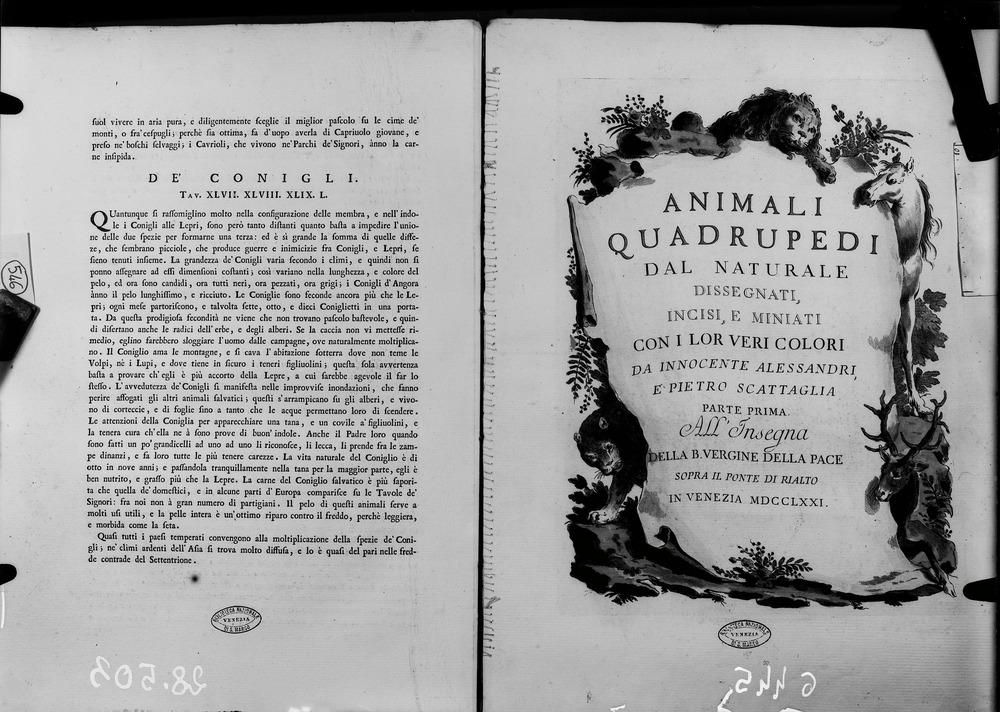 ſuol vivere in aria pura, e diligentemente ſceglie il miglior paſcolo ſu le cime de'
monti, o fra'ceſpugli; perchè ſia ottima, fa d'uopo averla di Capriuolo giovane, e
preſo ne'boſchi ſelvaggi; i Cavrioli, che vivono ne'Parchi de'Signori, ànno la car-
ne inſipida.
DE' CONIGLI.
TAV. XLVII. XLVIII. XLIX. L.
QUantunque ſi raſſomiglino molto nella configurazione delle membra, e nell'indo-
le i Conigli alle Lepri, ſono però tanto diſtanti quanto baſta a impedire l'unio-
ne delle due ſpezie per formarne una terza: ed è sì grande la ſomma di quelle diffe-
ze, che ſembrano picciole, che produce guerre e inimicizie fra Conigli, e Lepri, ſe
ſieno tenuti inſieme. La grandezza de'Conigli varia ſecondo i climi, e quindi non ſi
ponno aſſegnare ad eſſi dimenſioni coſtanti; così variano nella lunghezza, e colore del
pelo, ed ora ſono candidi, ora tutti neri, ora pezzati, ora grigi; i Conigli d'Angora
ànno il pelo lunghiſſimo, e ricciuto. Le Coniglie ſono feconde ancora più che le Le-
pri; ogni meſe partoriſcono, e talvolta ſette, otto, e dieci Coniglietti in una porta-
ta. Da queſta prodigioſa fecondità ne viene che non trovano paſcolo baſtevole, e quin-
di diſertano anche le radici dell'erbe, e degli alberi. Se la caccia non vi metteſſe ri-
medio, eglino farebbero sloggiare l'uomo dalle campagne, ove naturalmente moltiplica-
no. Il Coniglio ama le montagne, e ſi cava l'abitazione ſotterra dove non teme le
Volpi, nè i Lupi, e dove tiene in ſicuro i teneri figliuolini; queſta ſola avvertenza
baſta a provare ch'egli è più accorto della Lepre, a cui ſarebbe agevole il far lo
ſteſſo. L'avvedutezza de'Conigli ſi manifeſta nelle improvviſe inondazioni, che fanno
perire affogati gli altri animali ſalvatici; queſti s'arrampicano ſu gli alberi, e vivo-
no di corteccie, e di foglie ſino a tanto che le acque permettano loro di ſcendere.
Le attenzioni della Coniglia per apparecchiare una tana, e un covile a'figliuolini, e
la tenera cura ch'ella ne à ſono prove di buon'indole. Anche il Padre loro quando
ſono fatti un po'grandicelli ad uno ad uno li riconoſce, li lecca, li prende fra le zam-
pe dinanzi, e fa loro tutte le più tenere carezze. La vita naturale del Coniglio è di
otto in nove anni; e paſſandola tranquillamente nella tana per la maggior parte, egli è
ben nutrito, e graſſo più che la Lepre. La carne del Coniglio ſalvatico è più ſapori-
ta che quella de'domeſtici, e in alcune parti d'Europa compariſce ſu le Tavole de'
Signori: fra noi non à gran numero di partigiani. Il pelo di queſti animali ſerve a
molti uſi utili, e la pelle intera è un'ottimo riparo contro il freddo, perchè leggiera,
e morbida come la ſeta.
Quaſi tutti i paeſi temperati convengono alla moltiplicazione della ſpezie de'Coni-
gli; ne'climi ardenti dell'Aſia ſi trova molto diffuſa, e lo è quaſi del pari nelle fred-
de contrade del Settentrione.
BIBLIOTECA NAZIONALE
VENEZIA
DI S. MARCO
28.503
546
ANIMALI
QUADRUPEDI
DAL NATURALE
DISSEGNATI,
INCISI, E MINIATI
CON I LOR VERI COLORI
DA INNOCENTE ALESSANDRI,
E PIETRO SCATTAGLIA
PARTE PRIMA.
All'Insegna
DELLA B. VERGINE DELLA PACE
SOPRA IL PONTE DI RIALTO
IN VENEZIA MDCCLXXI.
BIBLIOTECA NAZIONALE
VENEZIA
DI S. MARCO